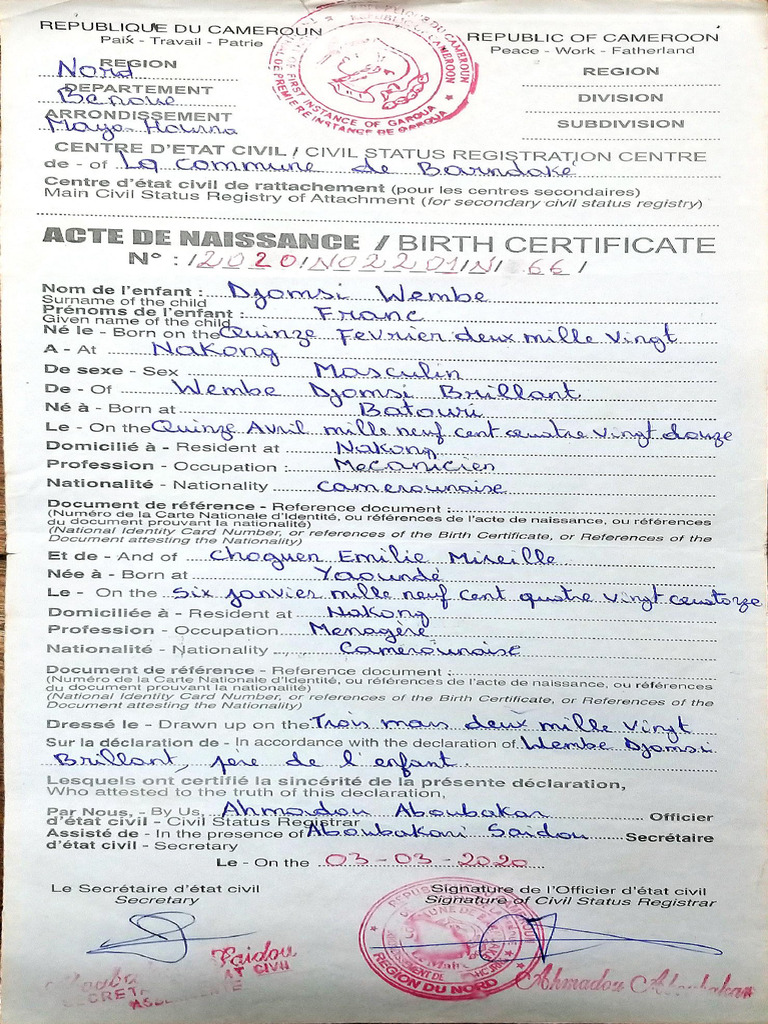 REPUBLIQUE DU CAMEROUN
Paix - Travail - Patrie
REPUBLIC OF CAMEROON
Peace - Work - Fatherland
REGION
Nord
DEPARTEMENT
Benoue
ARRONDISSEMENT
Mayo Hourna
REGION
DIVISION
SUBDIVISION
REPUBLIQUE DU CAMEROUN
REPUBLIC OF CAMEROON
FIRST INSTANCE OF GAROUA
DE PREMIERE INSTANCE DE GAROUA
CENTRE D'ETAT CIVIL / CIVIL STATUS REGISTRATION CENTRE
de - of La commune de Barndake
Centre d'état civil de rattachement (pour les centres secondaires)
Main Civil Status Registry of Attachment (for secondary civil status registry)
ACTE DE NAISSANCE / BIRTH CERTIFICATE
N° : /2020/NO2201/N/ 66 /
Nom de l'enfant : Djomsi Wembe
Surname of the child
Prénoms de l'enfant : Franc
Given name of the child
Né le - Born on the Quinze Fevrier deux mille vingt
A - At Nakong
De sexe - Sex Masculin
De - Of Wembe Djomsi Brillant
Né à - Born at Batouri
Le - On the Quinze Avril mille neuf cent quatre vingt douze
Domicilié à - Resident at Nakong
Profession - Occupation : Mecanicien
Nationalité - Nationality camerounaise
Document de référence - Reference document :
(Numéro de la Carte Nationale d'Identité, ou références de l'acte de naissance, ou références
du document prouvant la nationalité)
(National Identity Card Number, or references of the Birth Certificate, or References of the
Document attesting the Nationality)
Et de - And of Choguen Emilie Mireille
Née à - Born at Yaoundé
Le - On the Six janvier mille neuf cent quatre vingt quatorze
Domiciliée à - Resident at Nakong
Profession - Occupation Menagère
Nationalité - Nationality Camerounaise
Document de référence - Reference document :
(Numéro de la Carte Nationale d'Identité, ou références de l'acte de naissance, ou références
du document prouvant la nationalité)
(National Identity Card Number, or references of the Birth Certificate, or References of the
Document attesting the Nationality)
Dressé le - Drawn up on the Trois mars deux mille vingt
Sur la déclaration de - In accordance with the declaration of Wembe Djomsi
Brillant, père de l'enfant
Lesquels ont certifié la sincérité de la présente déclaration,
Who attested to the truth of this declaration,
Par Nous, - By Us, Ahmadou Aboubakar Officier
d'état civil - Civil Status Registrar
Assisté de - In the presence of Aboubakari Saidou Secrétaire
d'état civil - Secretary
Le - On the 03-03-2020
Le Secrétaire d'état civil
Secretary
Signature de l'Officier d'état civil
Signature of Civil Status Registrar
Saidou
REGION DU NORD
Ahmadou Aboubakar